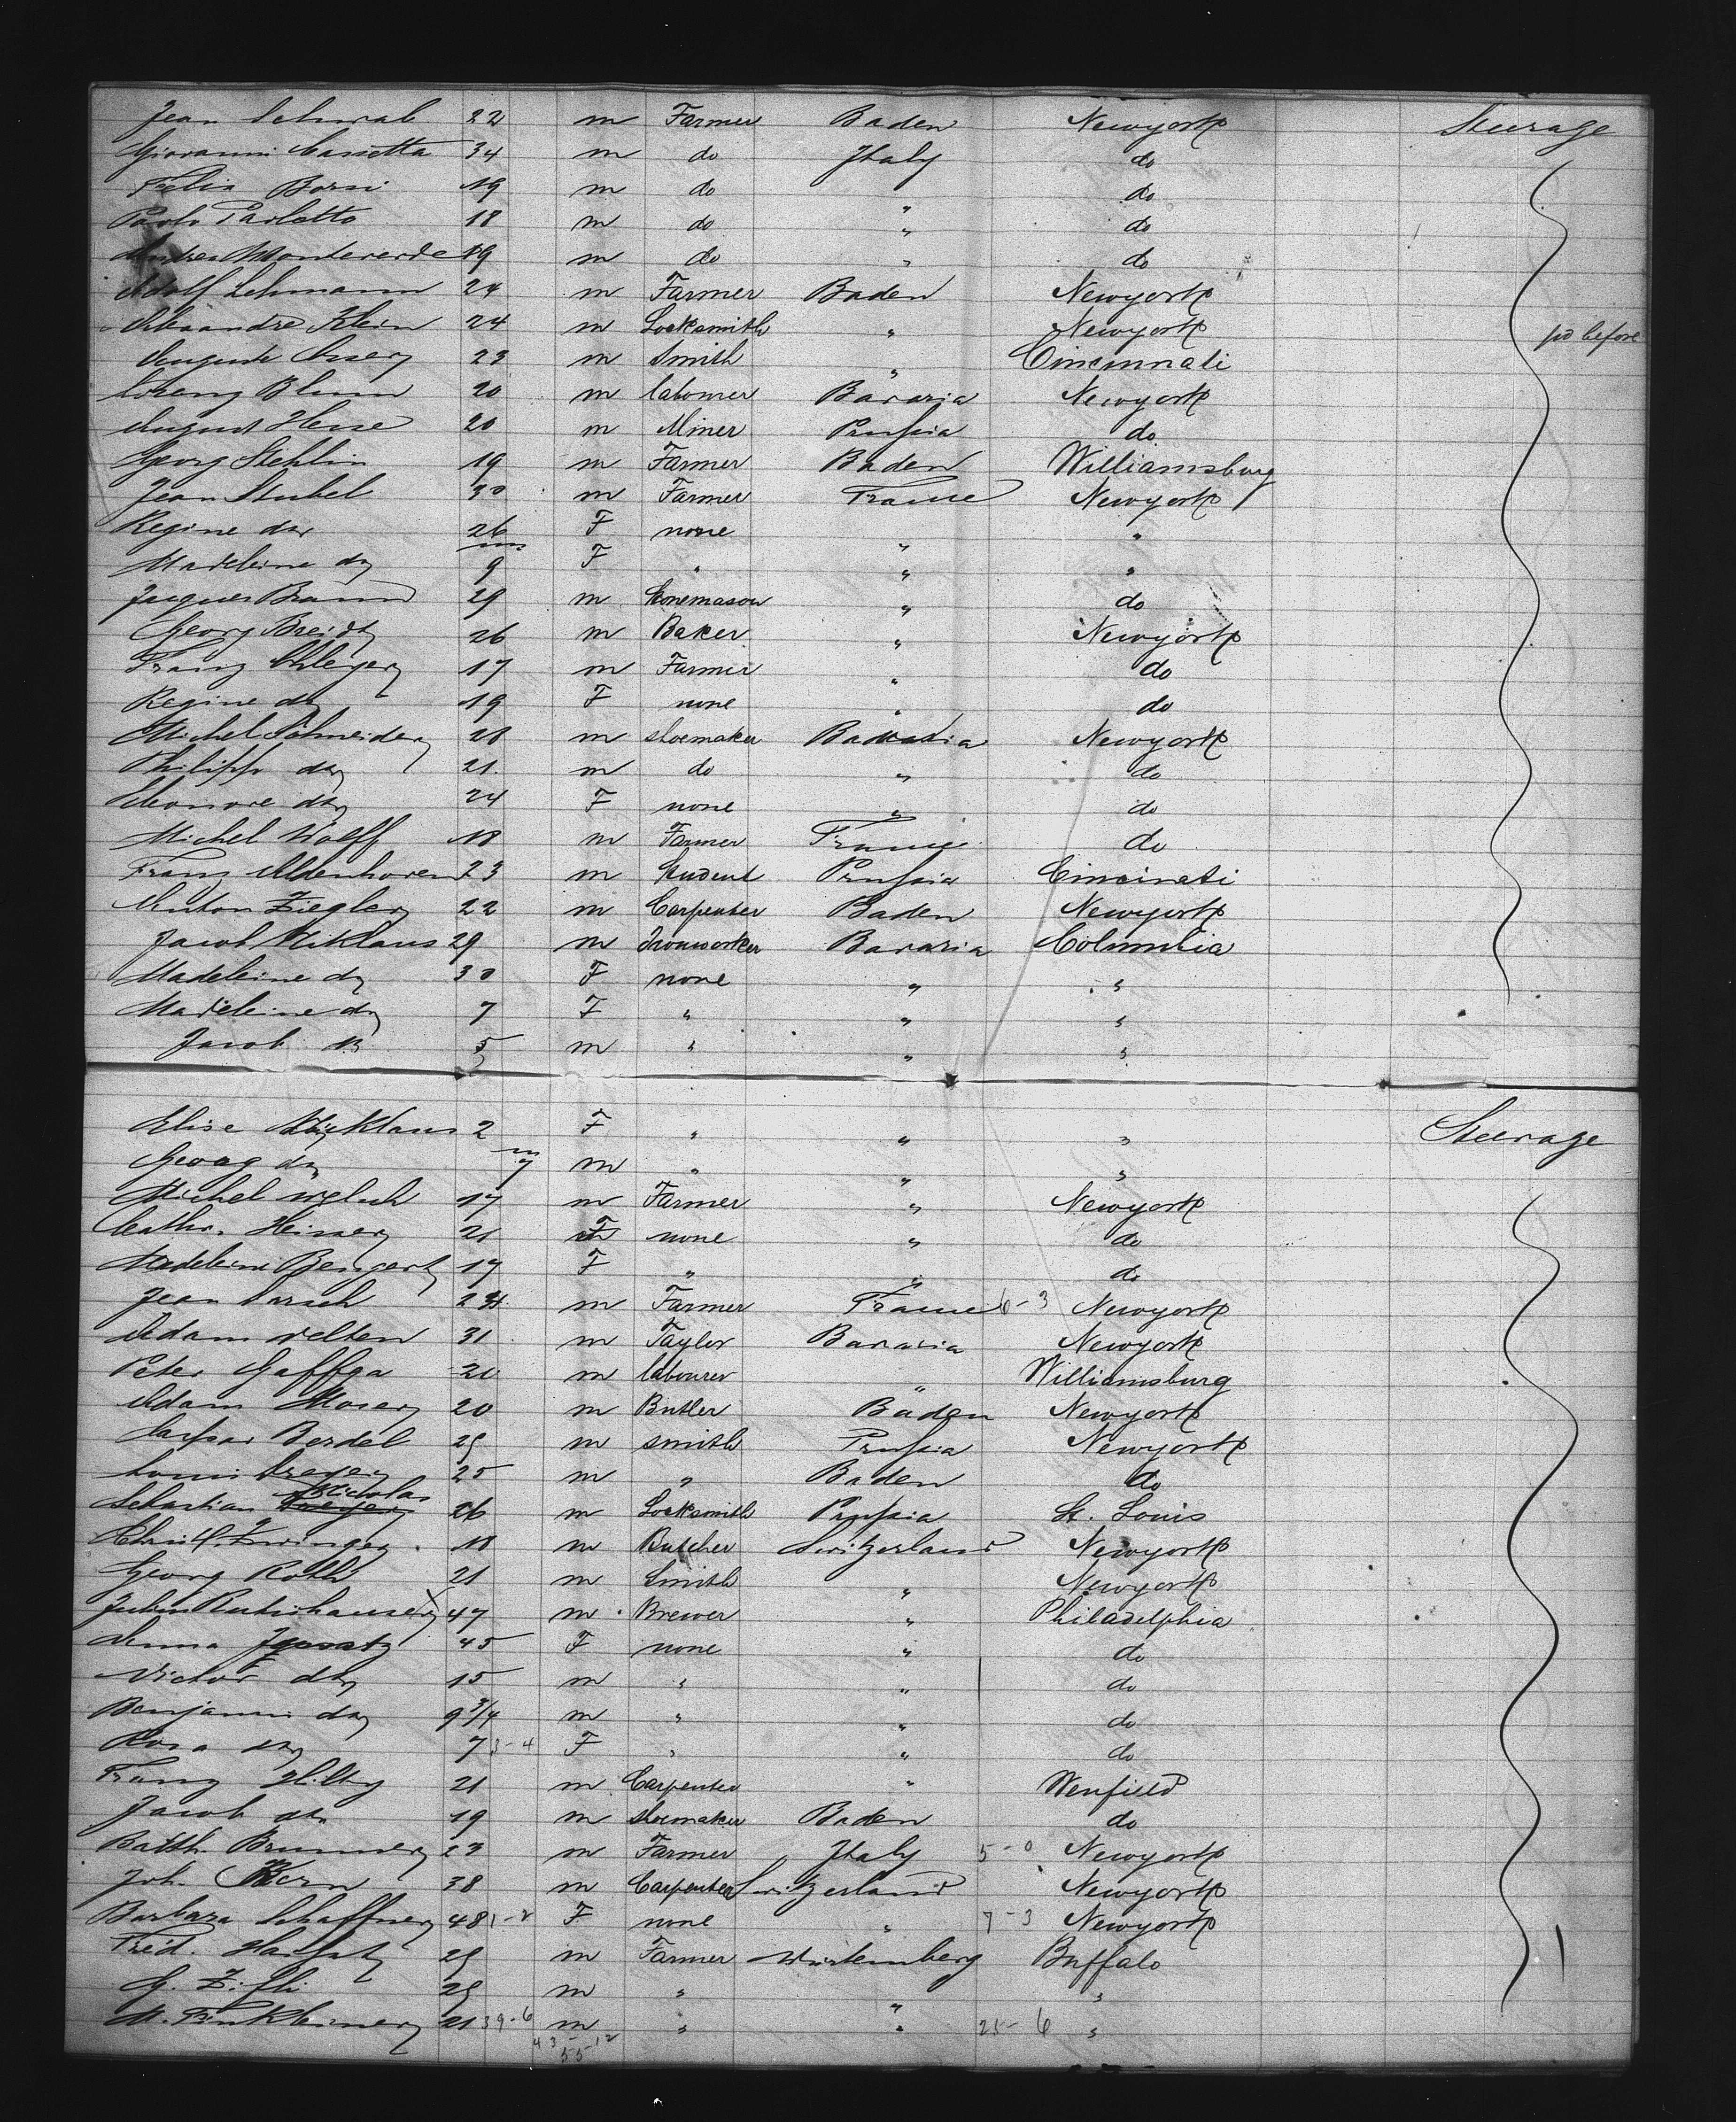 Jean Schwab 22 m Farmer Baden Newyork Steerage
Giovanni Cassetta 34 m do Italy do
Felix Borni 19 m do " do
Paolo Paoletto 18 m do " do
Andrea Monteverde 19 m do " do
Adolf Lehmann 24 m Farmer Baden Newyork
Alexandre Klein 24 m Locksmith " Newyork pd before
Auguste 23 m Smith " Cincinnati
Lorenz Blum 20 m labourer Bavaria Newyork
August Hesse 20 m Miner Prussia do
Georg Stehlin 19 m Farmer Baden Williamsburg
Jean Strubel 30 m Farmer France Newyork
Regine do 26 F none " "
Madeleine do 9 F " " "
Jacques Braun 29 m Stonemason " do
Georg Breidt 26 m Baker " Newyork
Franz 17 m Farmer " do
Regine do 19 F none " do
Michel Schneider 28 m shoemaker Bavaria Newyork
Philipp do 21 m do " do
Eleonore do 24 F none " do
Michel Wolff 18 m Farmer France do
Franz Aldenhoven 23 m Student Prussia Cincinati
Anton Ziegler 22 m Carpenter Baden Newyork
Jacob Niklaus 29 m Ironworker Bavaria Columbia
Madeleine do 30 F none " "
Madeleine do 7 F " " "
Jacob do 5 m " " "
Elise Nicklaus 2 F " " " Steerage
Georg do 7 m " " "
Michel Welsch 17 m Farmer " Newyork
Cathr. Heisser 21 F none " do
Madeleine Bengert 17 F " " do
Jean 24 m Farmer France 6-3 Newyork
Adam Velten 31 m Taylor Bavaria Newyork
Peter Gaffga 20 m labourer " Williamsburg
Adam Moser 20 m Butler Baden Newyork
Caspar Berdel 29 m smith Prussia Newyork
Louis Dreyer 25 m " Baden do
Sebastian Nicholas 26 m Locksmith Prussia St. Louis
Christ. Zwinger 18 m Butcher Switzerland Newyork
Georg Roth 21 m Smith " Newyork
Julius Rutishauser 47 m Brewer " Philadelphia
Anna 45 F none " do
Victor do 15 m " " do
Benjamin do 9 3/4 m " " do
Rosa do 7 3-4 F " " do
Franz Hilby 21 m Carpenter " Wenfield
Jacob do 19 m shoemaker Baden do
Balth. Brunner 23 m Farmer Italy 5-0 Newyork
Joh. Kern 38 m Carpenter Switzerland Newyork
Barbara Schaffner 48 1-2 F none " 7-3 Newyork
Fred. 29 m Farmer Würtemberg Buffalo
G. 29 m " " "
M. Finkbeiner 21 39-6 m " " 25-6 "
43-12
55